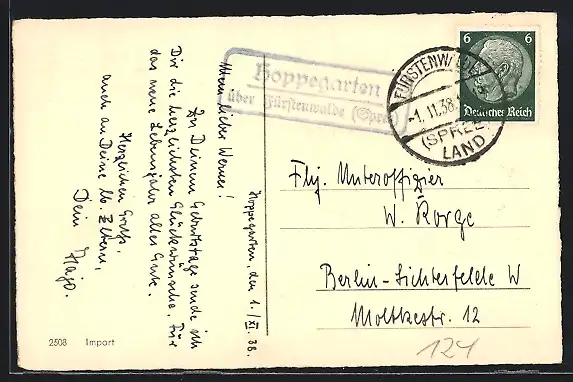 Hoppegarten, den 1./XI. 38.
Mein lieber Werner!
Zu Deinem Geburtstage sende ich
Dir die herzlichsten Glückwünsche. Für
das neue Lebensjahr alles Gute.
Herzlichen Gruß,
auch an Deine lb. Eltern,
Dein Hajo.
2508 Import
Hoppegarten
über Fürstenwalde (Spree)
FÜRSTENWALDE
-1.11.38.
(SPREE)
LAND
6 6
Deutsches Reich
Flg. Unteroffizier
W. Korge
Berlin-Lichterfelde W
Moltkestr. 12
124